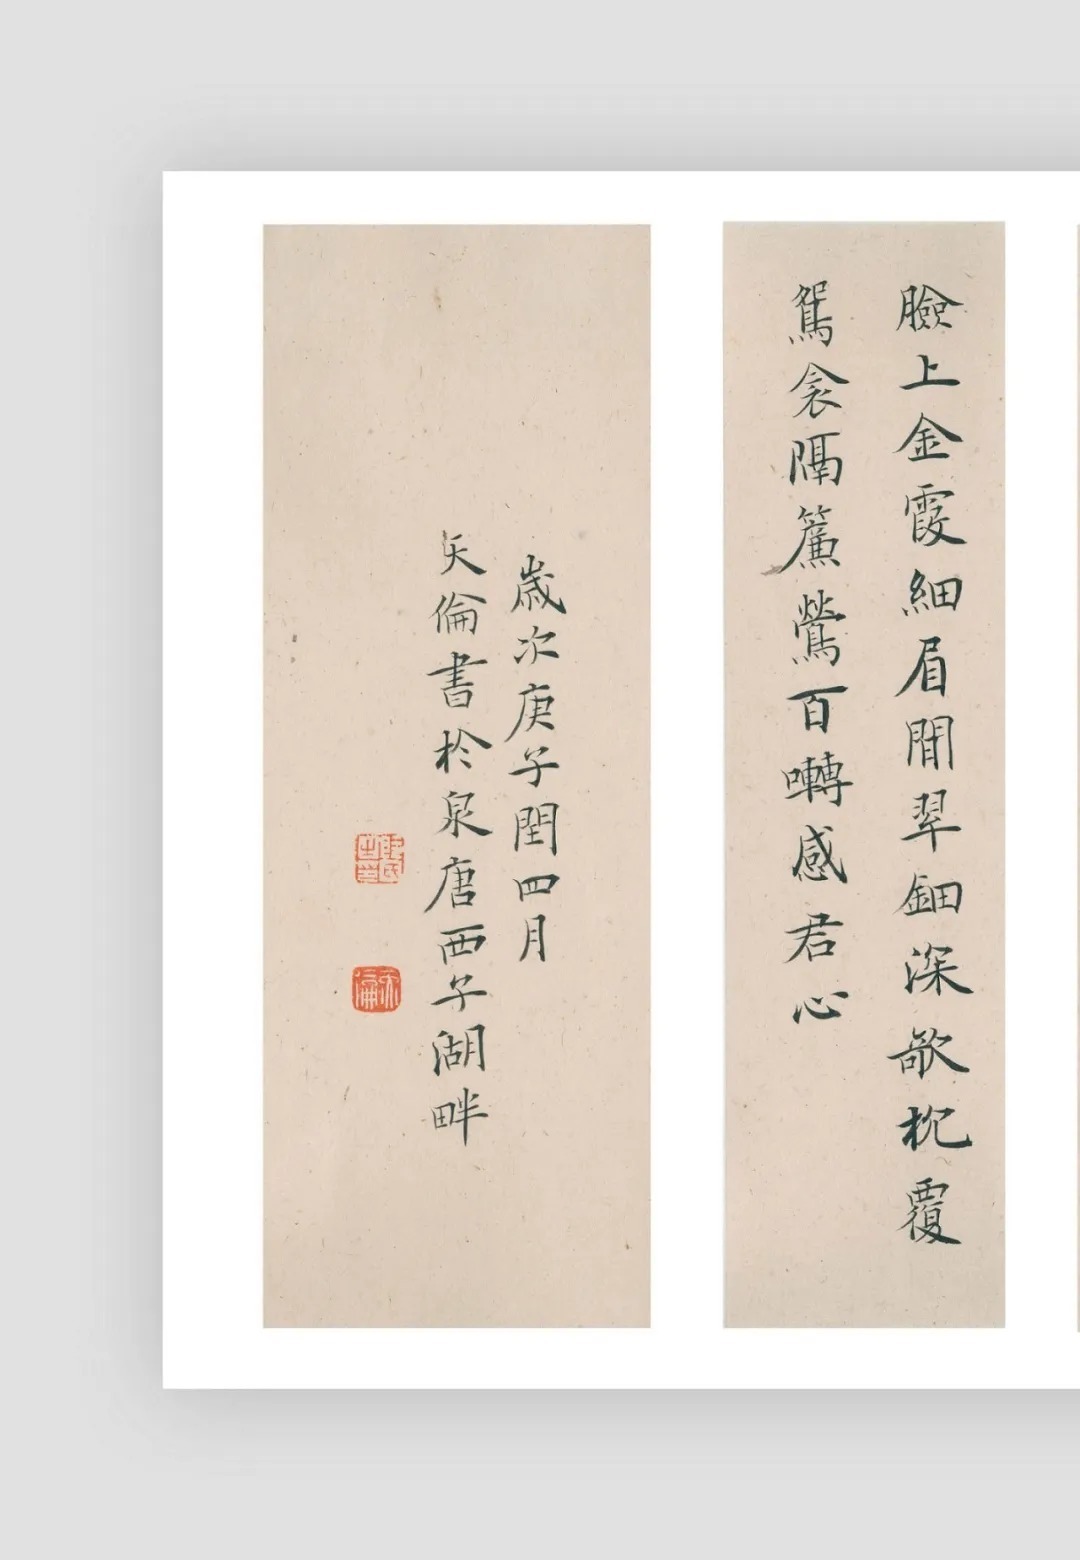 臉上金霞細眉間翠鈿深欹枕覆
鴛衾隔簾鶯百囀感君心
歲次庚子閏四月
天倫書於泉唐西子湖畔